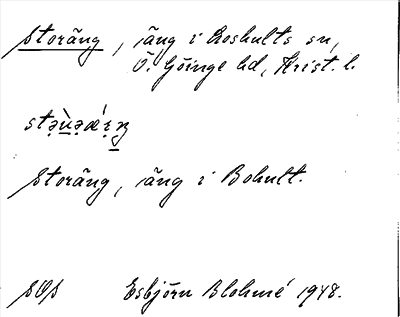 Storäng, äng i Boshults sn,
Ö. Göinge hd, Krist. l.
Storäng, äng i Bohult.
SOS Esbjörn Blohmé 1948.